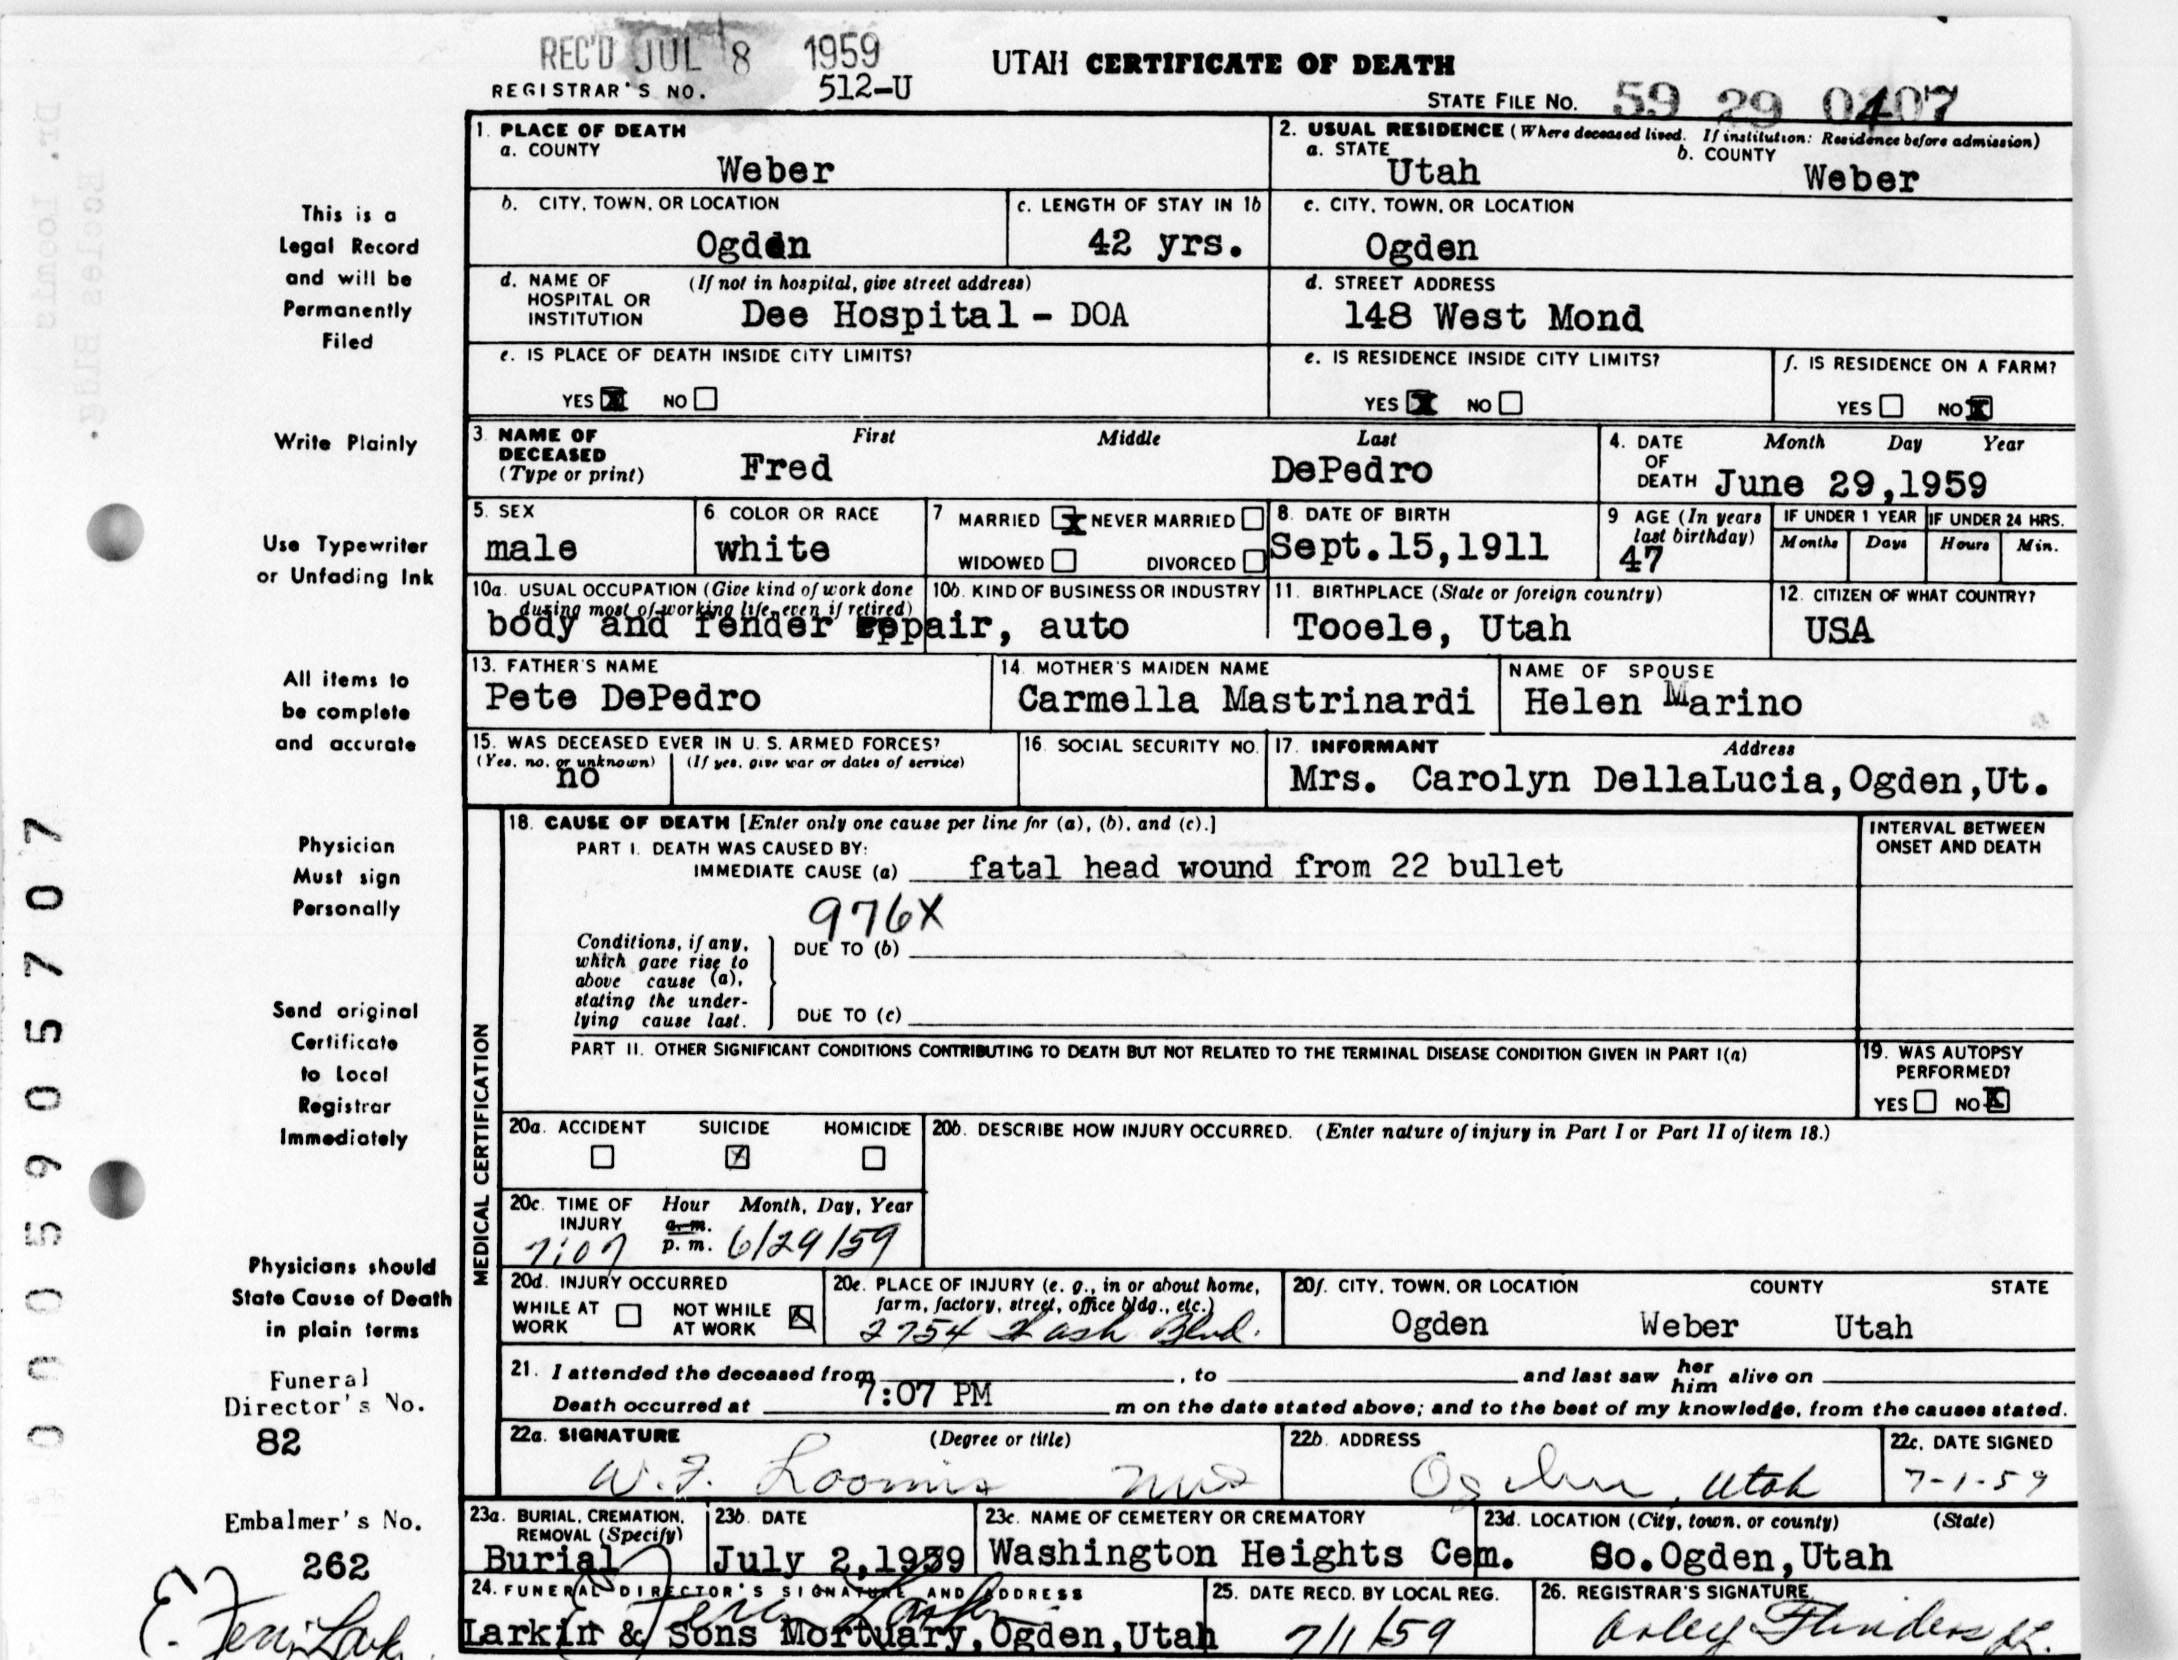 REC'D JUL 8 1959
UTAH CERTIFICATE OF DEATH
REGISTRAR'S NO. 512-U
STATE FILE NO. 59 29 0407
1. PLACE OF DEATH
a. COUNTY
Weber
2. USUAL RESIDENCE (Where deceased lived. If institution: Residence before admission)
a. STATE
Utah
b. COUNTY
Weber
b. CITY, TOWN, OR LOCATION
Ogden
c. LENGTH OF STAY IN 1b
42 yrs.
c. CITY, TOWN, OR LOCATION
Ogden
d. NAME OF HOSPITAL OR INSTITUTION
(If not in hospital, give street address)
Dee Hospital - DOA
d. STREET ADDRESS
148 West Mond
e. IS PLACE OF DEATH INSIDE CITY LIMITS?
YES X NO
e. IS RESIDENCE INSIDE CITY LIMITS?
YES X NO
f. IS RESIDENCE ON A FARM?
YES NO X
3. NAME OF DECEASED
(Type or print)
First Middle Last
Fred DePedro
4. DATE OF DEATH
Month Day Year
June 29,1959
5. SEX
male
6. COLOR OR RACE
white
7 MARRIED X NEVER MARRIED
WIDOWED DIVORCED
8. DATE OF BIRTH
Sept.15,1911
9 AGE (In years last birthday)
47
IF UNDER 1 YEAR
Months Days
IF UNDER 24 HRS.
Hours Min.
10a. USUAL OCCUPATION (Give kind of work done during most of working life, even if retired)
10b. KIND OF BUSINESS OR INDUSTRY
body and fender repair, auto
11. BIRTHPLACE (State or foreign country)
Tooele, Utah
12. CITIZEN OF WHAT COUNTRY?
USA
13. FATHER'S NAME
Pete DePedro
14. MOTHER'S MAIDEN NAME
Carmella Mastrinardi
NAME OF SPOUSE
Helen Marino
15. WAS DECEASED EVER IN U. S. ARMED FORCES?
(Yes, no, or unknown) (If yes, give war or dates of service)
no
16. SOCIAL SECURITY NO.
17. INFORMANT Address
Mrs. Carolyn DellaLucia,Ogden,Ut.
MEDICAL CERTIFICATION
18. CAUSE OF DEATH [Enter only one cause per line for (a), (b), and (c).]
PART I. DEATH WAS CAUSED BY:
IMMEDIATE CAUSE (a) fatal head wound from 22 bullet
976X
Conditions, if any, which gave rise to above cause (a), stating the underlying cause last.
DUE TO (b)
DUE TO (c)
INTERVAL BETWEEN ONSET AND DEATH
PART II. OTHER SIGNIFICANT CONDITIONS CONTRIBUTING TO DEATH BUT NOT RELATED TO THE TERMINAL DISEASE CONDITION GIVEN IN PART I(a)
19. WAS AUTOPSY PERFORMED?
YES NO X
20a. ACCIDENT SUICIDE HOMICIDE
X
20b. DESCRIBE HOW INJURY OCCURRED. (Enter nature of injury in Part I or Part II of item 18.)
20c. TIME OF INJURY
Hour Month, Day, Year
7:07 a.m. p.m. 6/29/59
20d. INJURY OCCURRED
WHILE AT WORK NOT WHILE AT WORK X
20e. PLACE OF INJURY (e. g., in or about home, farm, factory, street, office bldg., etc.)
2754 Wash Blvd.
20f. CITY, TOWN, OR LOCATION COUNTY STATE
Ogden Weber Utah
21. I attended the deceased from , to and last saw her him alive on
Death occurred at 7:07 PM m on the date stated above; and to the best of my knowledge, from the causes stated.
22a. SIGNATURE (Degree or title)
W. F. Loomis MD
22b. ADDRESS
Ogden, Utah
22c. DATE SIGNED
7-1-59
23a. BURIAL, CREMATION, REMOVAL (Specify)
Burial
23b. DATE
July 2,1959
23c. NAME OF CEMETERY OR CREMATORY
Washington Heights Cem.
23d. LOCATION (City, town, or county) (State)
So.Ogden,Utah
24. FUNERAL DIRECTOR'S SIGNATURE AND ADDRESS
Larkin & Sons Mortuary,Ogden,Utah
25. DATE RECD. BY LOCAL REG.
7/1/59
26. REGISTRAR'S SIGNATURE
This is a
Legal Record
and will be
Permanently
Filed
Write Plainly
Use Typewriter
or Unfading Ink
All items to
be complete
and accurate
Physician
Must sign
Personally
Send original
Certificate
to Local
Registrar
Immediately
Physicians should
State Cause of Death
in plain terms
Funeral
Director's No.
82
Embalmer's No.
262
Dr. Loomis
Eccles Bldg.